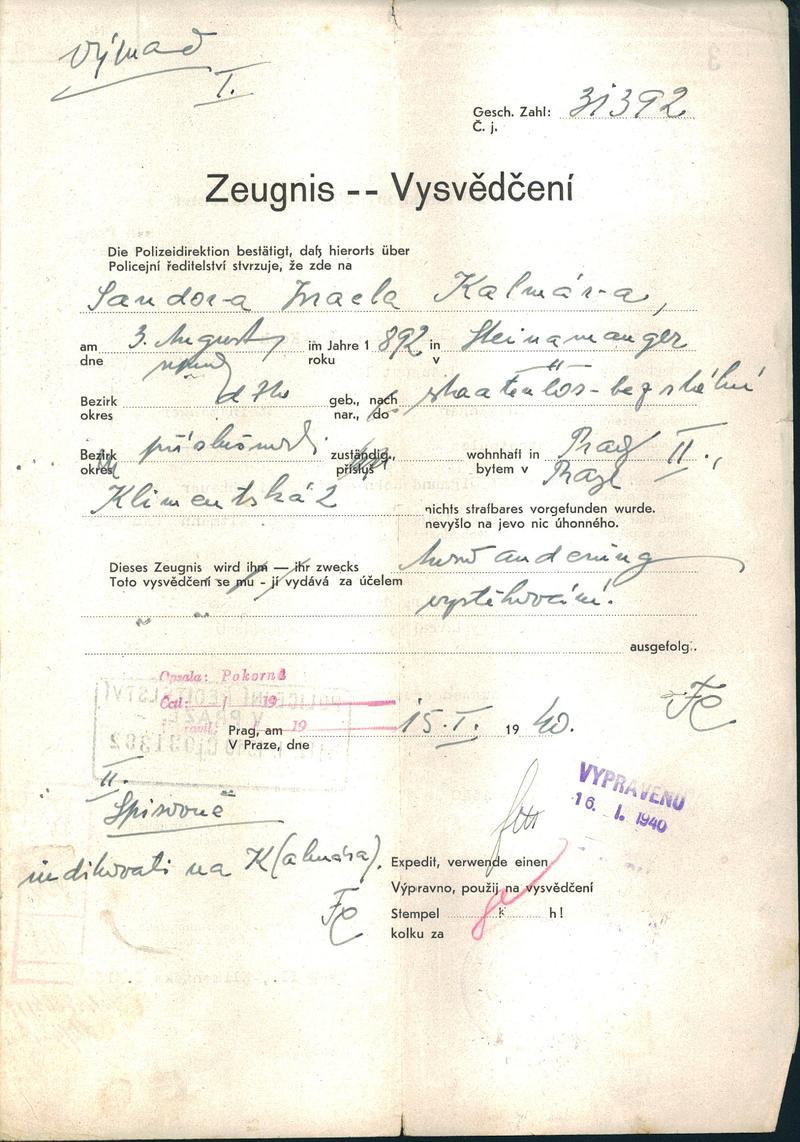 Výmaz
I.
Gesch. Zahl: 31392
Č. j.
Zeugnis -- Vysvědčení
Die Polizeidirektion bestätigt, daß hierorts über
Policejní ředitelství stvrzuje, že zde na
Sandor-a Israela Kalmár-a,
am 3. August im Jahre 1 892 in Steinamanger
dne srpna roku v
Bezirk dtto geb., nach staatenlos - bez státní
okres nar., do
Bezirk příslušnosti zuständig., wohnhaft in Prag II.,
okres přísluš bytem v Praze
Klimentská 2 nichts strafbares vorgefunden wurde.
nevyšlo na jevo nic úhonného.
Dieses Zeugnis wird ihm — ihr zwecks Auswanderung
Toto vysvědčení se mu - jí vydává za účelem
vystěhování.
ausgefolg.
Opsala: Pokorná
Četl: / 19
19
POLICEJNÍ ŘEDITELSTVÍ
V PRAZE
Prag, am 15. I. 19 40.
V Praze, dne
II.
Spisovně
VYPRAVENO
16. I. 1940
indikovati na K(almára).
Expedit, verwende einen
Výpravno, použij na vysvědčení
Stempel K h!
kolku za